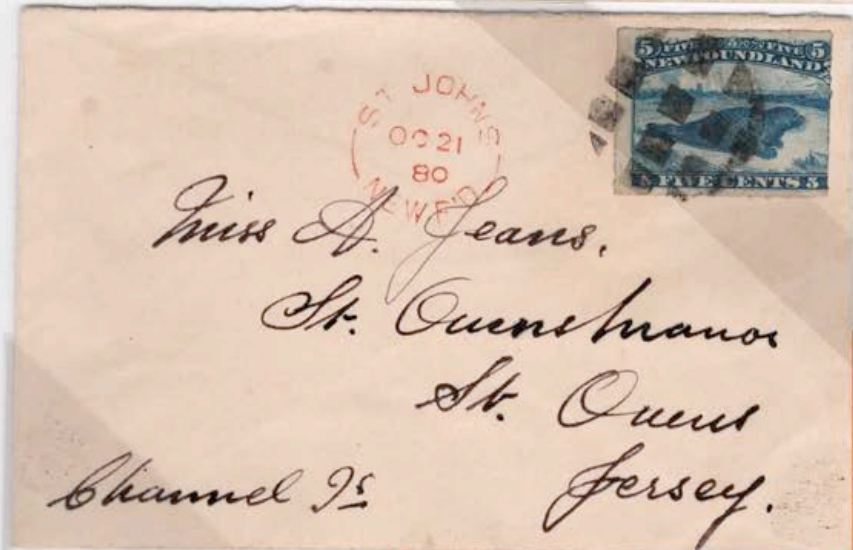 5 FIVE FIVE 5
NEWFOUNDLAND
FIVE CENTS 5
ST JOHN'S
OC 21
80
NEWF'D
Miss A. Jeans,
St. Ouens Manor
St. Ouens
Jersey.
Channel Is